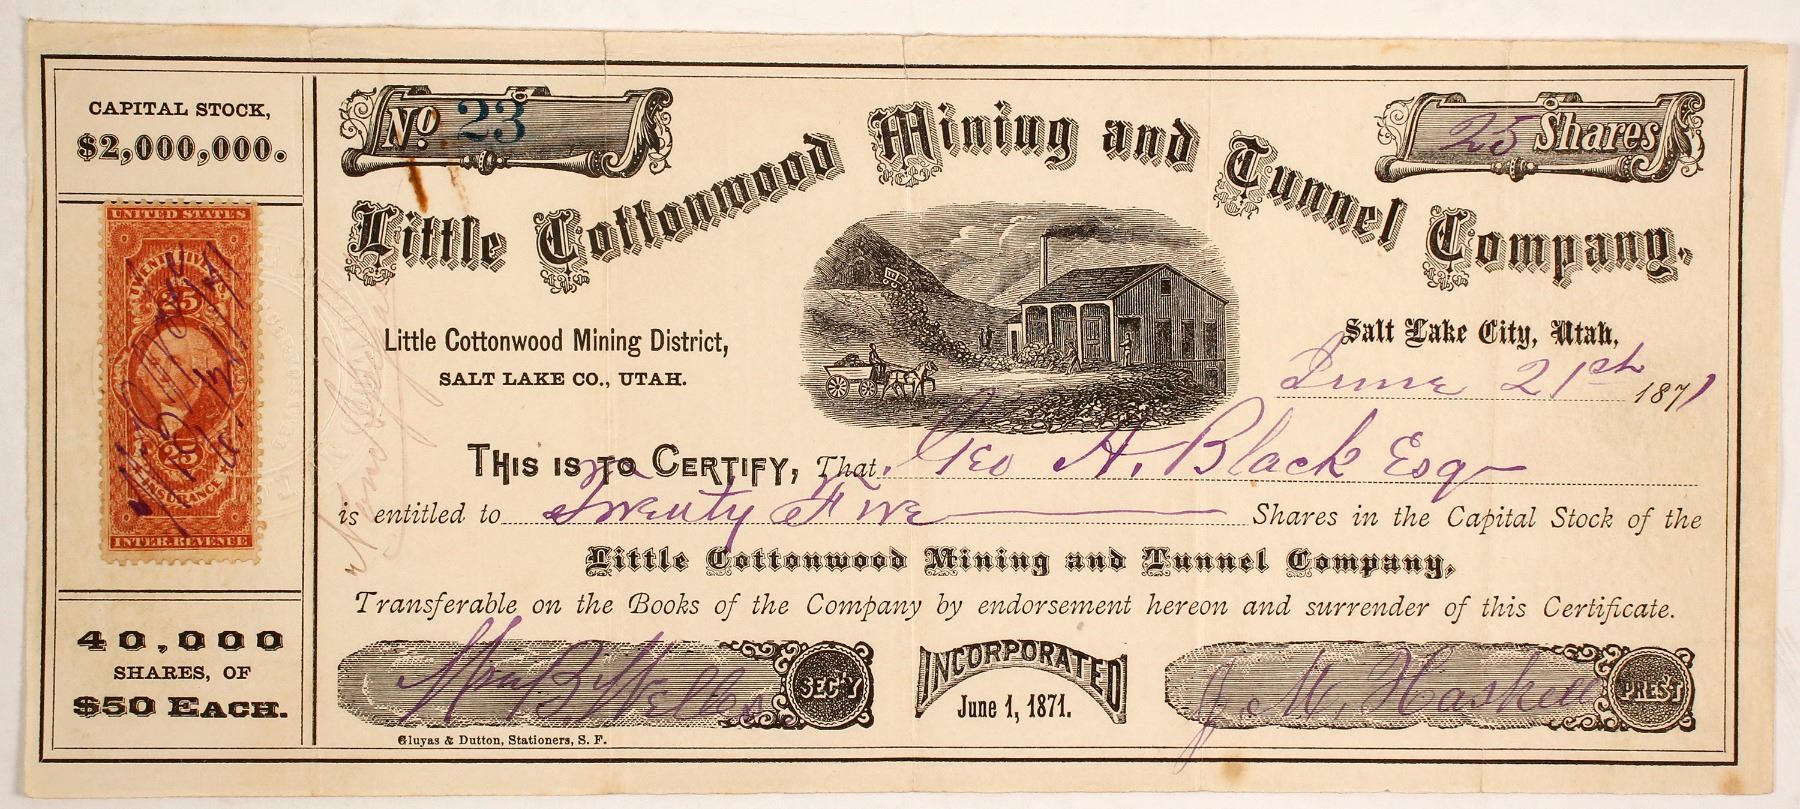 CAPITAL STOCK,
$2,000,000.
UNITED STATES
25
25
INSURANCE
INTER. REVENUE
40,000
SHARES, OF
$50 EACH.
No 23
25 Shares
Little Cottonwood Mining and Tunnel Company.
Little Cottonwood Mining District,
SALT LAKE CO., UTAH.
Salt Lake City, Utah,
June 21st 1871
THIS IS TO CERTIFY, That Geo H. Black Esq
is entitled to Twenty Five Shares in the Capital Stock of the
Little Cottonwood Mining and Tunnel Company,
Transferable on the Books of the Company by endorsement hereon and surrender of this Certificate.
Wm B. Welles SEC'Y
INCORPORATED
June 1, 1871.
J. M. Haskell PRES'T
Gluyas & Dutton, Stationers, S. F.